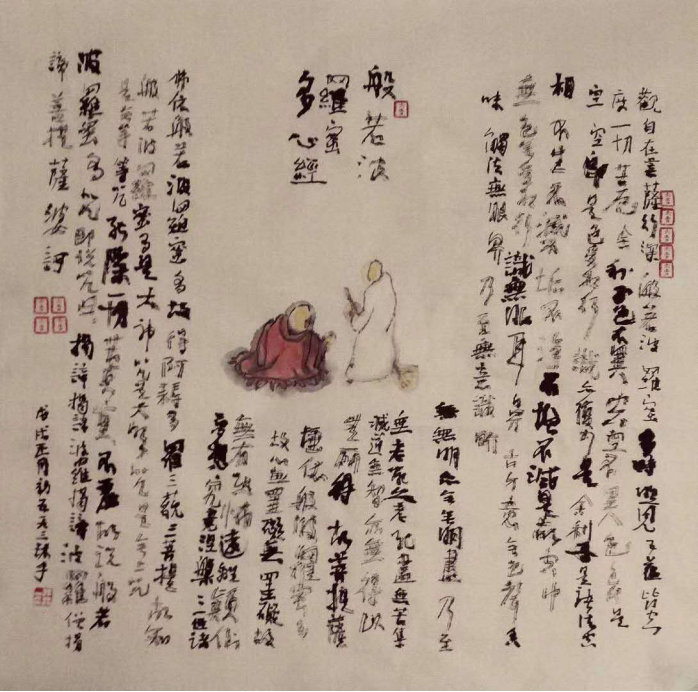 般若波
羅蜜
多心經
觀自在菩薩行深般若波羅蜜多時照見五蘊皆空
度一切苦厄舍利子色不異空
空空即是色受想行識亦復如是舍利子是諸法空
相不生不滅不垢不淨不增不減是故空中
無色無受想行識無眼耳鼻舌身意無色聲香
味觸法無眼界乃至無意識界
無無明亦無無明盡乃至
無老死亦老死盡無苦集
滅道無智亦無得以
無所得故菩提薩
埵依般若波羅蜜多
故心無罣礙無罣礙故
無有恐怖遠離顛倒
夢想究竟涅槃三世諸
佛依般若波羅蜜多故得阿耨多羅三藐三菩提故知
般若波羅蜜多是大神咒是大明咒是無上咒
是無等等咒能除一切苦真實不虛故說般若
波羅蜜多咒即說咒曰揭諦揭諦波羅揭諦波羅僧揭
諦菩提薩婆訶
戊戌正月初五